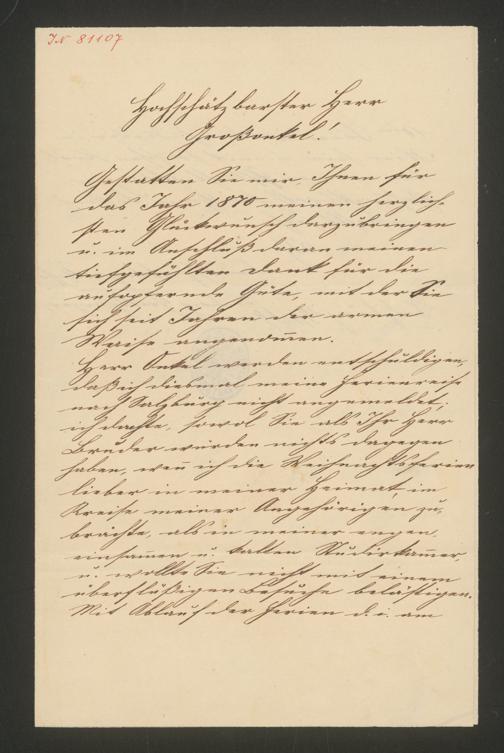 IN 81107
Hochschätzbarster Herr
Großonkel!
Gestatten Sie mir, Ihnen für
das Jahr 1870 meinen herzlich-
sten Glückwunsch darzubringen
u. im Anschluß daran meinen
tiefgefühlten Dank für die
aufopfernde Güte, mit der Sie
sich seit Jahren der armen
Waise angenom̄en.
Herr Onkel werden entschuldigen,
daß ich diesmal meine Ferienreise
nach Salzburg nicht angemeldet;
ich dachte, sowol Sie als Ihr Herr
Bruder würden nichts dagegen
haben, wen̄ ich die Weihnachtsferien
lieber in meiner Heimat, im
Kreise meiner Angehörigen zu-
brächte, als in meiner engen,
einsamen u. kalten Studirkam̄er,
u. wollte Sie nicht mit einem
überflüßigen Besuche belästigen.
Mit Ablauf der Ferien d. i. am